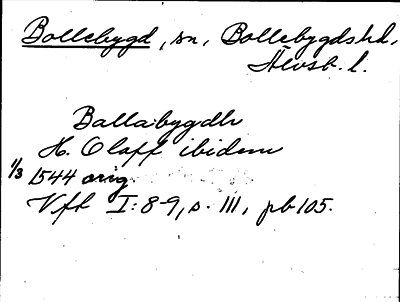 Bollebygd, sn, Bollebygds hd,
Älvsb. l.
Ballabygdh
H. Olaff ibidem
1/3 1544 orig.
Vfh I: 8-9, s. 111, pb 105.